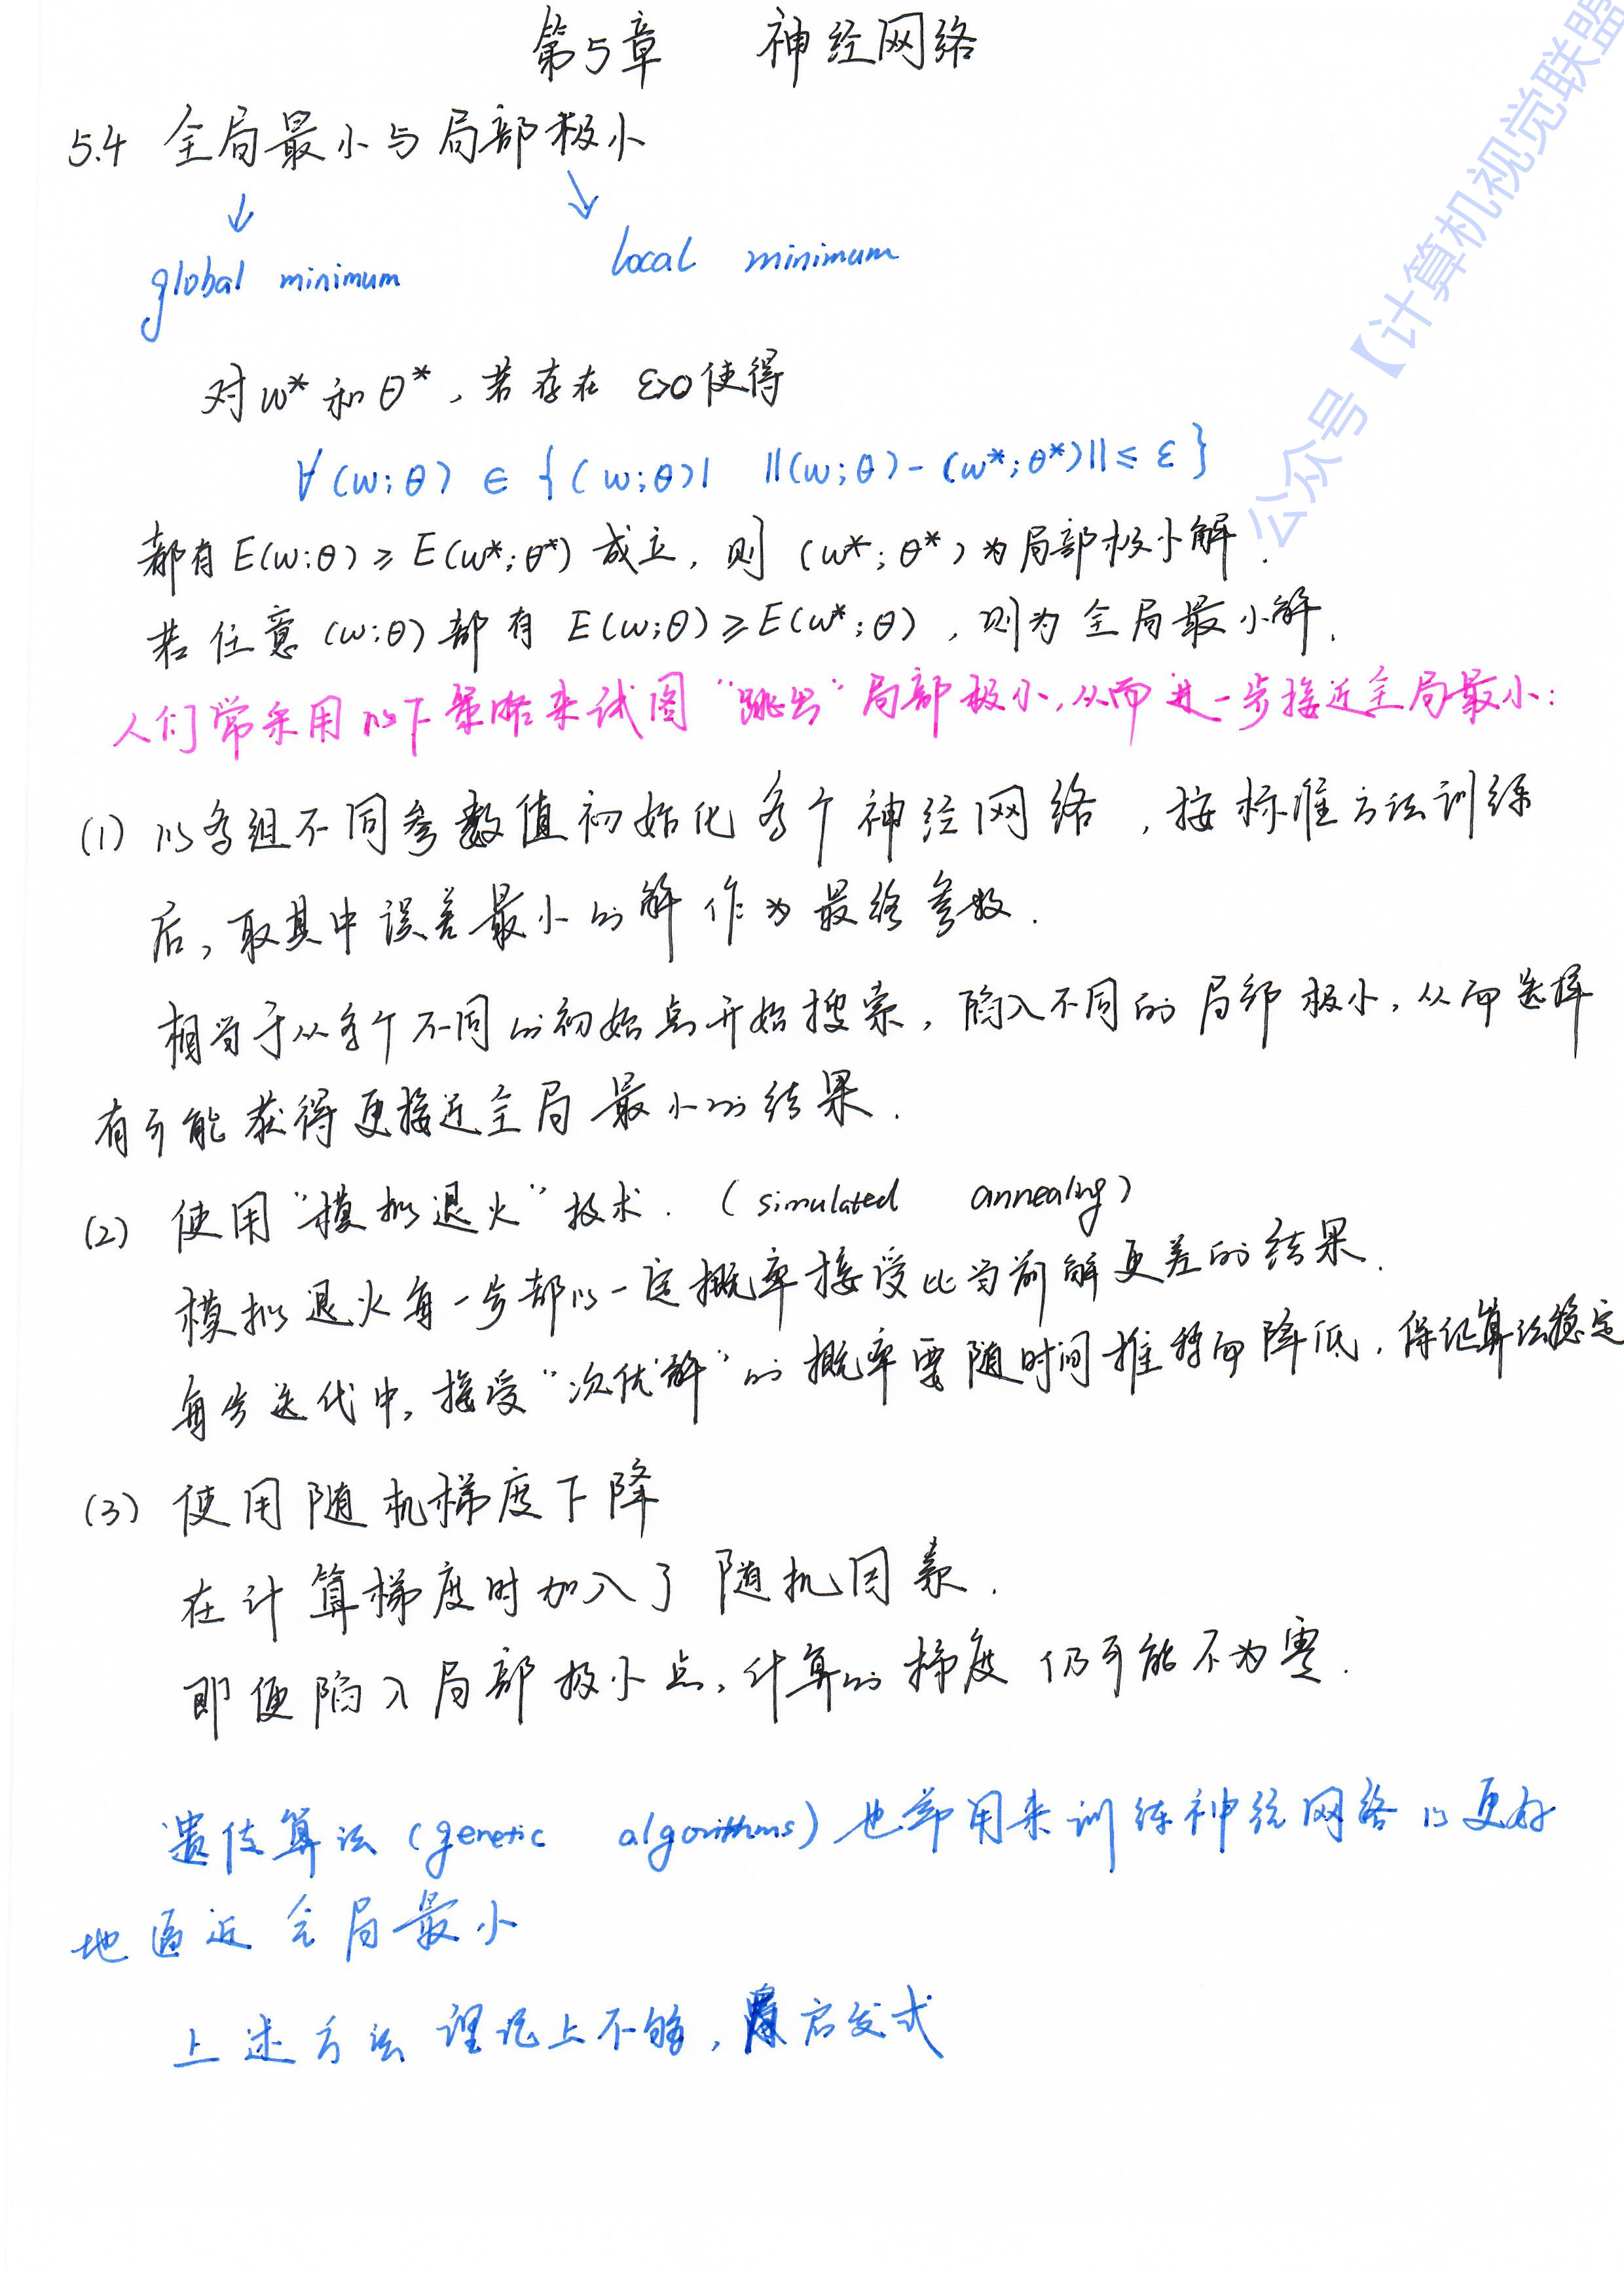 第5章 神经网络
5.4 全局最小与局部极小
global minimum
local minimum
对 w* 和 θ*，若存在 ε>0 使得
∀(w;θ) ∈ {(w;θ)| ||(w;θ)-(w*;θ*)||≤ ε}
都有 E(w;θ) ≥ E(w*;θ*) 成立，则 (w*;θ*) 为局部极小解.
若任意 (w;θ) 都有 E(w;θ) ≥ E(w*;θ)，则为全局最小解.
人们常采用以下策略来试图“跳出”局部极小，从而进一步接近全局最小：
(1) 以多组不同参数值初始化多个神经网络，按标准方法训练
后，取其中误差最小的解作为最终参数.
相当于从多个不同的初始点开始搜索，陷入不同的局部极小，从而选择
有可能获得更接近全局最小的结果.
(2) 使用“模拟退火”技术. (simulated annealing)
模拟退火每一步都以一定概率接受比当前解更差的结果.
每步迭代中，接受“次优解”的概率要随时间推移而降低，保证算法稳定
(3) 使用随机梯度下降
在计算梯度时加入了随机因素.
即便陷入局部极小点，计算的梯度仍可能不为零.
遗传算法 (genetic algorithms) 也常用来训练神经网络以更好
地逼近全局最小
上述方法理论上不够，启发式
公众号【计算机视觉联盟